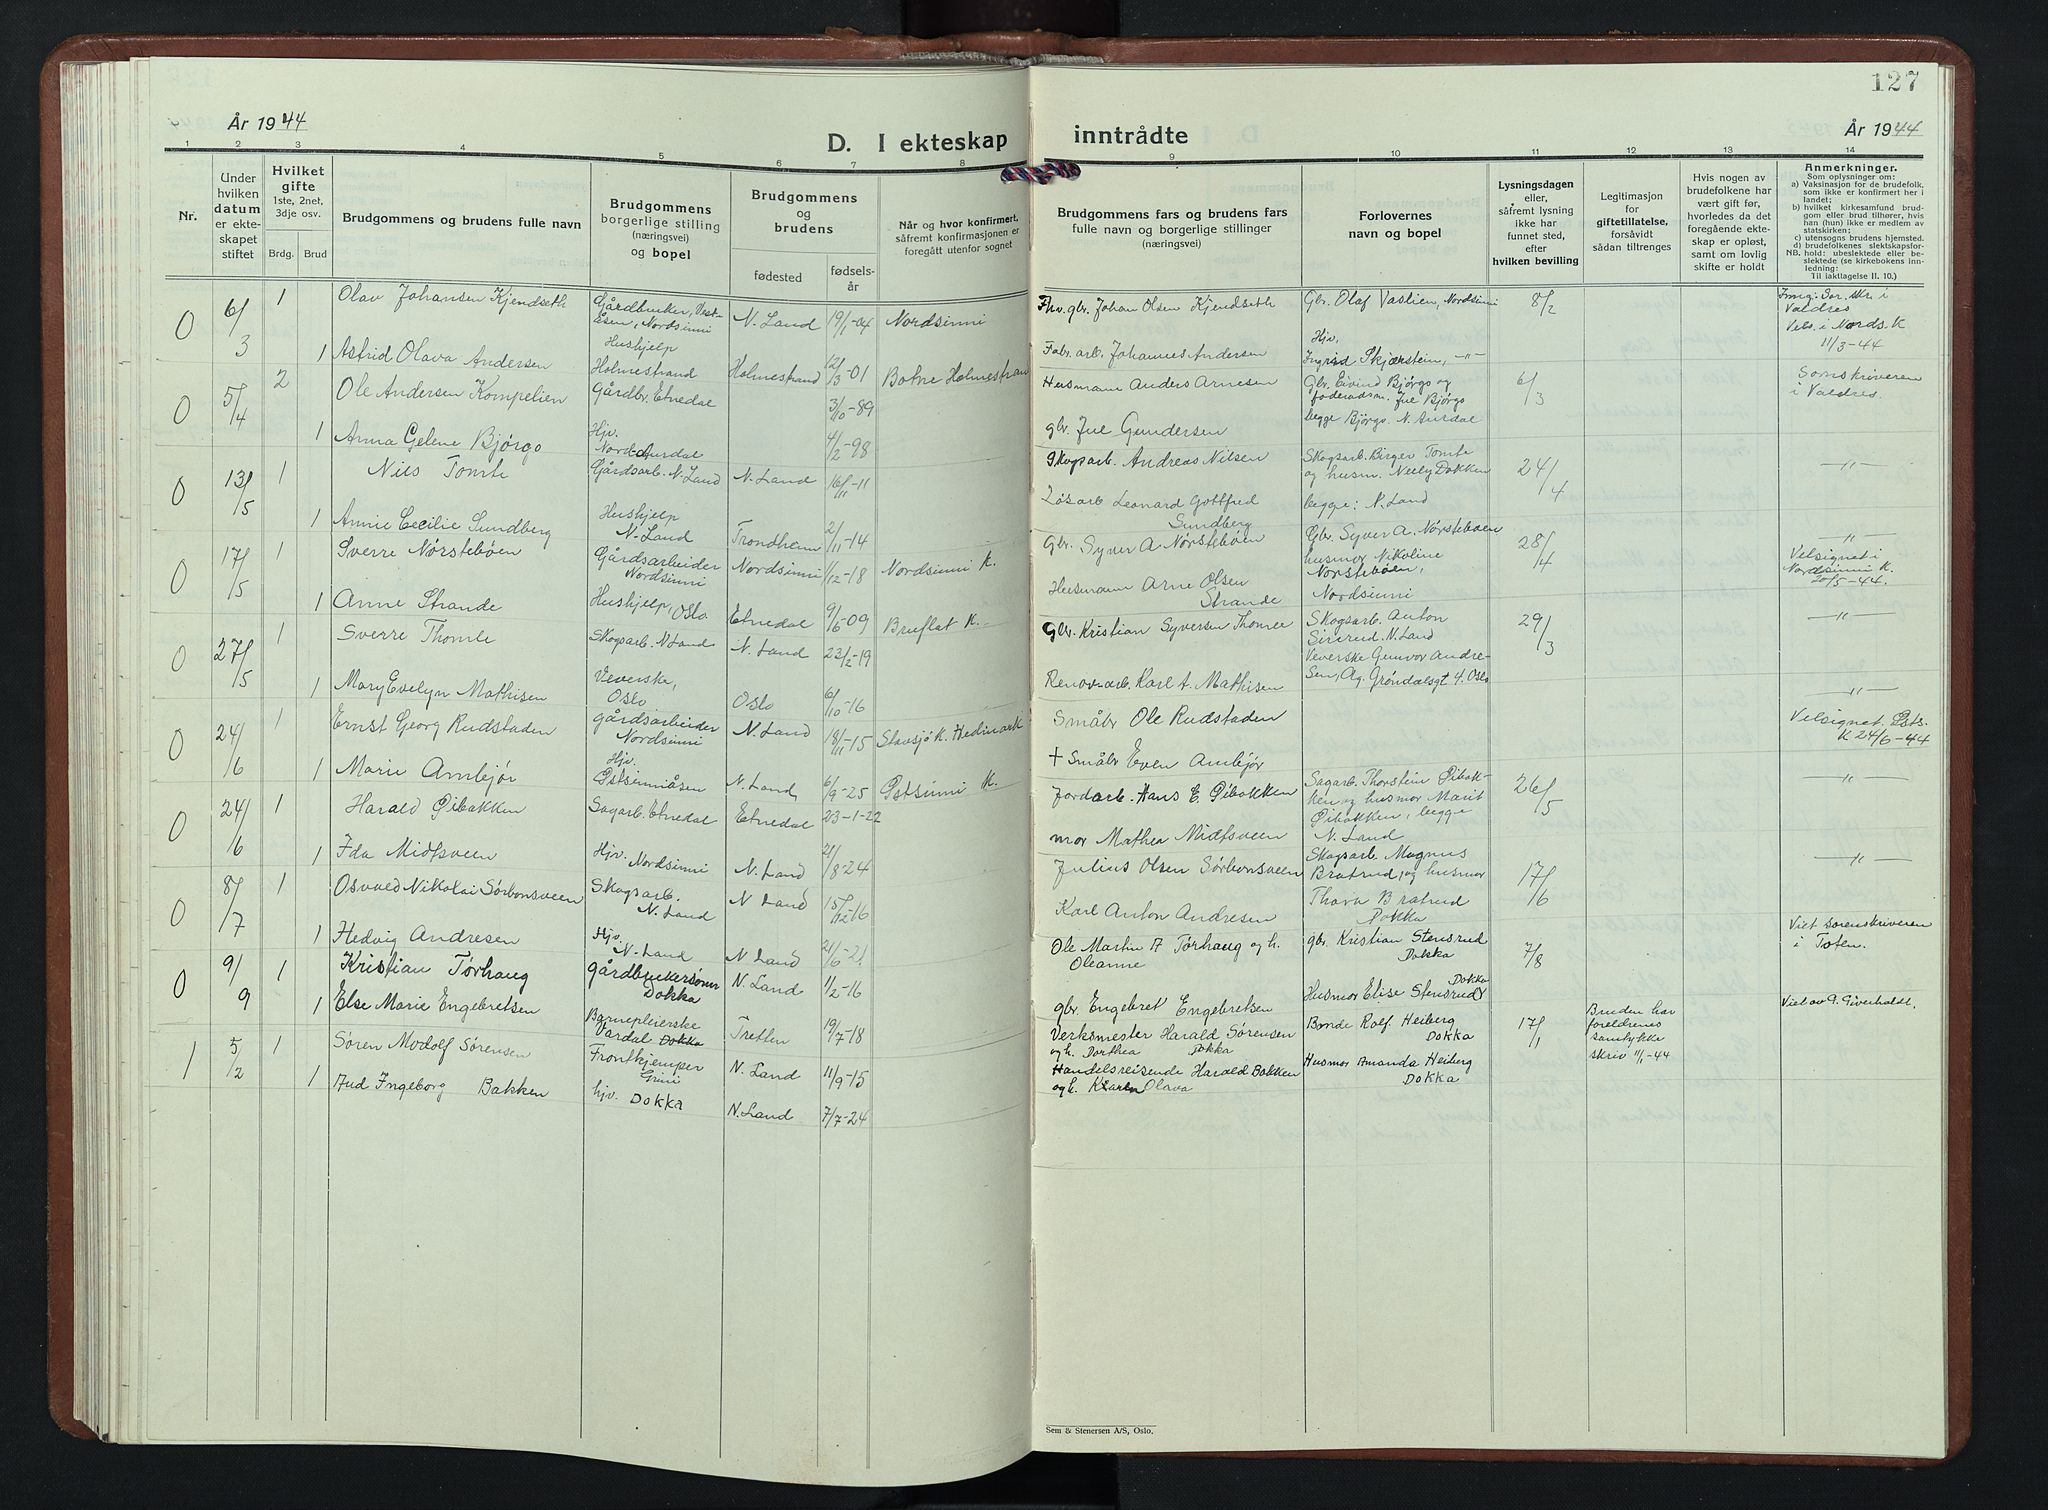 127
År 1944
D. I ekteskap inntrådte
År 1944
1 2 3 4 5 6 7 8 9 10 11 12 13 14
Nr.
Under hvilken datum er ekteskapet stiftet
Hvilket gifte 1ste, 2net, 3dje osv.
Brdg. Brud
Brudgommens og brudens fulle navn
Brudgommens borgerlige stilling (næringsvei) og bopel
Brudgommens og brudens
fødested
fødselsår
Når og hvor konfirmert, såfremt konfirmasjonen er foregått utenfor sognet
Brudgommens fars og brudens fars fulle navn og borgerlige stillinger (næringsvei)
Forlovernes navn og bopel
Lysningsdagen eller, såfremt lysning ikke har funnet sted, efter hvilken bevilling
Legitimasjon for giftetillatelse, forsåvidt sådan tiltrenges
Hvis nogen av brudefolkene har vært gift før, hvorledes da det foregående ekteskap er opløst, samt om lovlig skifte er holdt
Anmerkninger.
Som oplysninger om:
a) Vaksinasjon for de brudefolk, som ikke er konfirmert her i landet;
b) hvilket kirkesamfund brudgom eller brud tilhører, hvis han (hun) ikke er medlem av statskirken;
c) utensogns brudens hjemsted.
d) brudefolkenes slektskapsforhold: ubeslektede eller beslektede (se kirkebokens innledning:
NB. Til iakttagelse II. 10.)
0 6/3 1 Olav Johansen Kjendseth Gårdbruker, Veståsen, Nordsinni N. Land 19/1-04 Nordsinni Fhv. gbr. Johan Olsen Kjendseth Gbr. Olaf Vastien, Nordsinni 8/2 Sor. skr. i Valdres Vels. i Nords. K 11/3-44
1 Astrid Olava Andersen Hushjelp Holmestrand Holmestrand 12/3-01 Botne Holmestran Fabr. arb. Johannes Andersen Hjv. Ingrid Skjærstein, -"-
0 5/4 2 Ole Andersen Kompelien Gårdbr. Etnedal 3/10-89 Husmann Anders Arnesen Gbr. Eivind Bjørgo og føderådsm. Jul Bjørgo begge Bjørgo N. Aurdal 6/3 Sorenskriveren i Valdres.
1 Anna Gelene Bjørgo Hjv. Nord-Aurdal 4/2-98 gbr. Jul Gundersen
0 13/5 1 Nils Tomte Gårdsarb. N. Land N. Land 16/11-11 Skogsarb. Andreas Nilsen Skogsarb. Birger Tomte og husm. Nelly Dokken begge: N. Land 24/4 -"-
1 Annie Cecilie Sundberg Hushjelp N. Land Trondheim 2/11-14 Løsarb. Leonard Gottfred Sundberg
0 17/5 1 Sverre Nørstebøen Gårdsarbeider Nordsinni Nordsinni 1/12-18 Nordsinni K. Gbr. Syver A. Nørstebøen Gbr. Syver A. Nørstebøen husmor Nikoline Nørstebøen, Nordsinni 28/4 Velsignet i Nordsinni K. 20/5-44.
1 Anne Strande Hushjelp, Oslo. Etnedal 9/6-09 Bruflat K. Husmann Arne Olsen Strande
0 27/5 1 Sverre Thomle Skogsarb. N. Land N. Land 23/2-19 Gbr. Kristian Syversen Thomle Skogsarb. Anton N. Land Veverske Gunvor Andresen, Ag. Grøndalsgt 4. Oslo 29/3 -"-
1 Mary Evelyn Mathisen Veverske, Oslo Oslo 6/10-16 Renov. arb. Karl A. Mathisen -"-
0 24/6 1 Ernst Georg Rudstaden gårdsarbeider Nordsinni N. Land 18/11-15 Stavsjø k. Hedmark Småbr Ole Rudstaden Velsignet. Østs. K 24/6-44
1 Marie Amlejør Hjv. Østsinniåsen N. Land, 6/9-25 Østsinni K. + Småbr Even Amlejør
0 24/6 1 Harald Øibakken Sagarb. Etnedal Etnedal 23-1-22 Jordarb. Hans E. Øibakken Sagarb. Thorstein Øibakken og husmor Marit Øibakken, begge N. Land 26/5 -"-
1 Ida Midtsveen Hjv. Nordsinni N. Land 21/8-24 mor Mathea Midtsveen
0 8/7 1 Osvald Nikolai Sørbonsveen Skogsarb. N. Land N Land 15/12-16 Julius Olsen Sørbonsveen Skogsarb. Magnus Bratrud, og husmor Thora Bratrud Dokka 17/6 -"-
1 Hedvig Andresen Hjv. N. Land N Land 21/6-21 Karl Anton Andresen
0 9/9 1 Kristian Tørhaug gårdbrukersønn Dokka N. Land 1/2-16 Ole Martin A Tørhaug og h. Oleanne gbr. Kristian Stensrud Dokka 7/8 Viet sorenskriveren i Toten.
1 Else Marie Engebretsen Barnepleierske Vardal Dokka Tretten 19/7-18 gbr. Engebret Engebretsen Husmor Elise Stensrud Dokka
1 5/2 1 Søren Modolf Sørensen Frontkjemper Grini N. Land 11/9-15 Verksmester Harald Sørensen og h. Dorthea Dokka Bonde Rolf Heiberg Dokka 17/1 Bruden har foreldrenes samtykke skriv 11/1-44 Viet av G. Giverholdt.
1 Aud Ingeborg Bakken hjv. Dokka N. Land 7/7-24 Handelsreisende Harald Bakken og h. Karen Olava Husmor Amanda Heiberg Dokka
Sem & Stenersen A/S, Oslo.